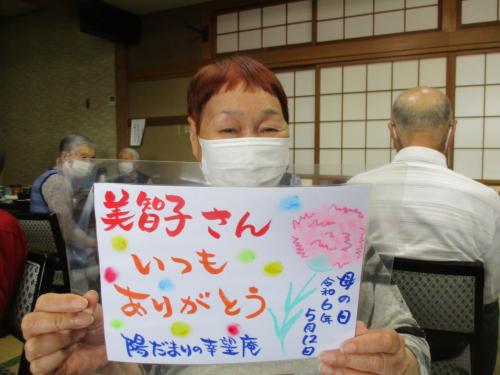 美智子さん
いつも
ありがとう
陽だまりの幸望庵
母の日
令和6年
5月12日